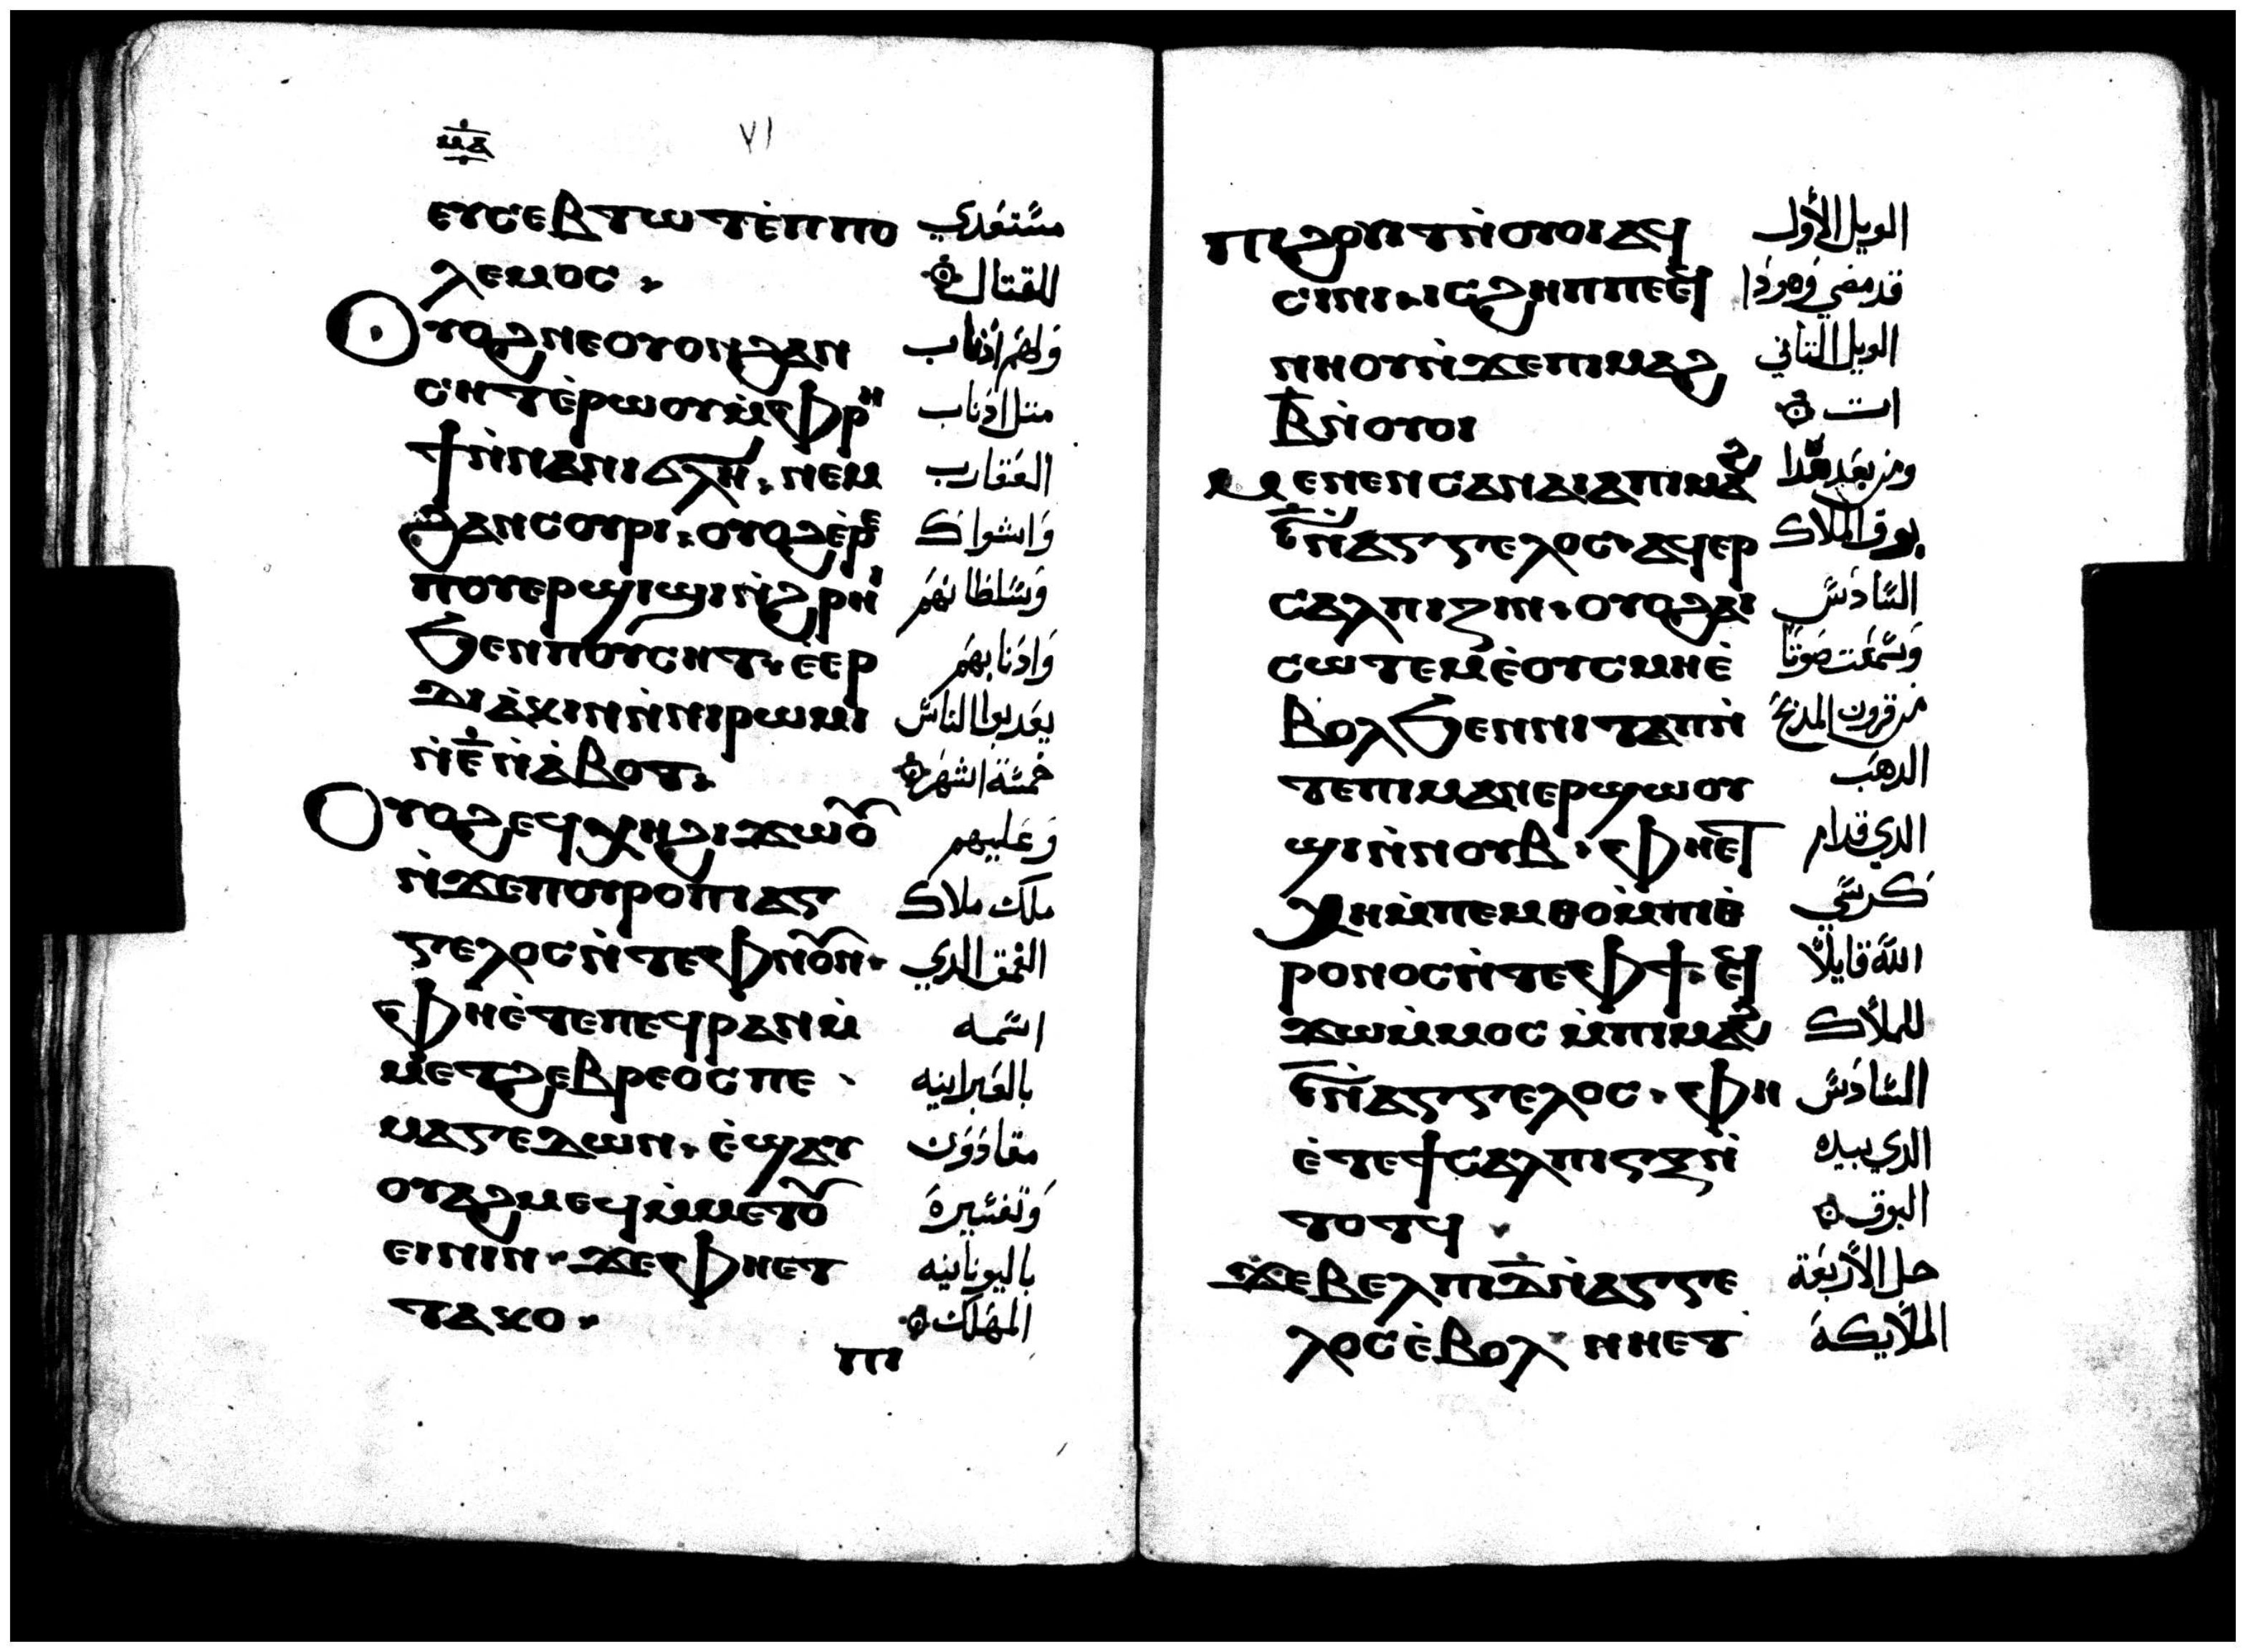 ٧١
ⲉⲩⲥⲉⲃⲧⲱⲧⲉ̀ⲡⲡⲟ مستعدي
ⲗⲉⲙⲟⲥ للقتال
ⲟⲩⲟϩⲛⲉⲟⲩⲟⲛϩⲁⲛ ولهم اذناب
ⲥⲏⲧⲉ̀ⲣⲱⲟⲩⲙ̀ⲫⲣⲏ متل ادناب
ϯⲛ̀ⲛⲁⲛⲓϭⲗⲏ ⲛⲉⲙ العقارب
ϩⲁⲛⲥⲟⲩⲣⲓ ⲟⲩⲟϩⲉ̀ⲣⲉ واشواك
ⲡⲟⲩⲉⲣϣⲓϣⲓⲛ̀ϩⲣⲏⲓ وسلطانهم
ϧⲉⲛⲡⲟⲩⲥⲏⲧ ⲉ̀ⲉⲣ وادنابهم
ⲁⲇⲓⲕⲓⲛⲛ̀ⲛⲓⲣⲱⲙⲓ يعدبوا الناس
ⲛ̀ⲉ̅ⲛ̀ⲁ̀ⲃⲟⲧ خمسة اشهر
ⲟⲩⲟϩⲉϥⲭⲏϩⲓϫⲱⲟⲩ وعليهم
ⲛ̀ϫⲉⲡⲟⲩⲣⲟⲡⲓⲁⲅ ملك ملاك
ⲅⲉⲗⲟⲥⲛ̀ⲧⲉⲫⲛⲟⲩⲛ الغمق الدي
ⲫⲏⲉ̀ⲧⲉⲡⲉϥⲣⲁⲛⲙ̀ اسمه
ⲙⲉⲧϩⲉⲃⲣⲉⲟⲥⲡⲉ بالعبرانيه
ⲙⲁⲅⲉⲇⲱⲛ ⲉ̀ϣⲁⲩ مقادوون
ⲟⲩⲁϩⲙⲉϥⲙ̀ⲙⲉⲧⲟⲩ وتفسيره
ⲉⲓⲛⲓⲛ ϫⲉⲫⲏⲉⲧ باليونانيه
ⲧⲁⲕⲟ المهلك
ⲡⲓ
ⲡⲓϩⲟⲩⲓⲧⲛ̀ⲟⲩⲟⲓⲁϥ الويل الأول
ⲥⲓⲛⲓ ⲓⲥϩⲏⲡⲡⲉⲉϥ قد مضي وهودا
ⲛⲏⲟⲩⲛ̀ϫⲉⲡⲓⲙⲁϩ الويل التاني
ⲃ̅ⲛ̀ⲟⲩⲟⲓ ات
ⲙⲉⲛⲉⲛⲥⲁⲛⲁⲓⲁⲡⲓⲙⲁϩ ومن بعد هدا
ⲋ̅ⲛ̀ⲁⲅⲅⲉⲗⲟⲥ ⲁϥⲉⲣ بوق الملاك
ⲥⲁⲗⲡⲓⲍⲓⲛ ⲟⲩⲟϩⲁⲓ السادس
ⲥⲱⲧⲉⲙⲉ̀ⲟⲩⲥⲙⲏⲉ̀ وسمعت صوتا
ⲃⲟⲗϧⲉⲛⲛⲓⲧⲁⲡⲛ̀ من قرون المدبح
ⲧⲉⲡⲓⲙⲁⲛⲉⲣϣⲱⲟⲩ الدهب
ϣⲓⲛ̀ⲛⲟⲩⲃ ⲫⲏⲉⲧ الدي قدام
ⲭⲏⲙ̀ⲡⲉⲙⲑⲟⲙ̀ⲡⲓⲑ كرسي
ⲣⲟⲛⲟⲥⲛ̀ⲧⲉⲫϯ ⲉϥ الله قايلا
ϫⲱⲙ̀ⲙⲟⲥ ⲙ̀ⲡⲓⲙⲁϩ للملاك
ⲋ̅ⲛ̀ⲁⲅⲅⲉⲗⲟⲥ ⲫⲏ السادس
ⲉ̀ⲧⲉϯⲥⲁⲗⲡⲓⲅⲝⲛ̀ الدي بيده
ⲧⲟⲧϥ البوق
ϫⲉⲃⲉⲗⲡⲓⲇ̅ⲛ̀ⲁⲅⲅⲉ حل الأربعة
ⲗⲟⲥⲉ̀ⲃⲟⲗ ⲛⲏⲉⲧ الملايكة